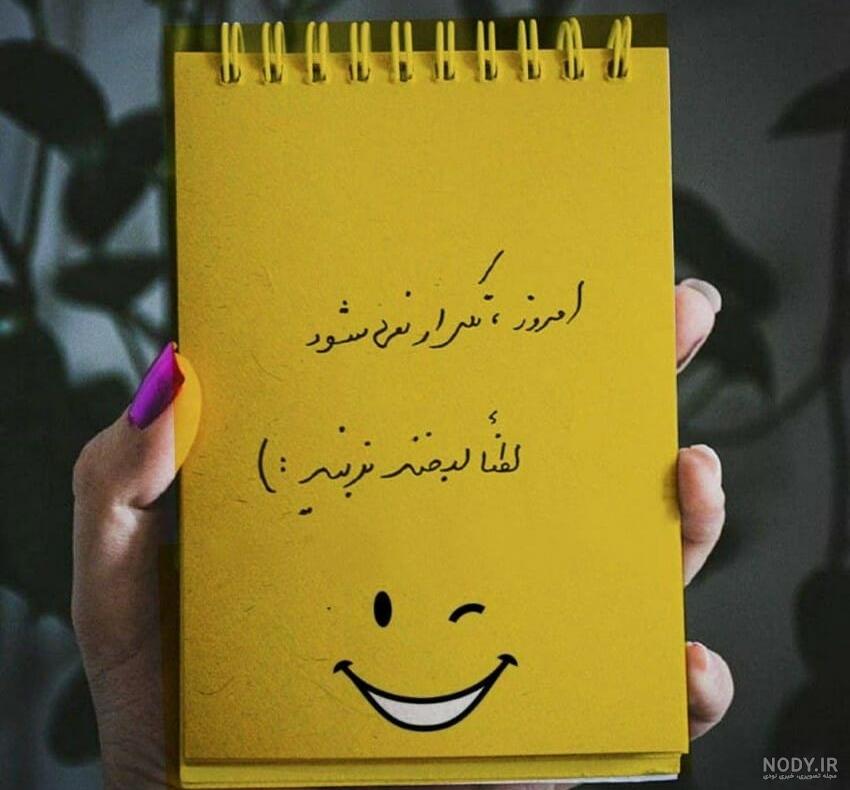 امروز ، تکرار نمی‌شود
لطفاً لبخند بزنید :)
NODY.IR
مجله تصویری، خبری نودی